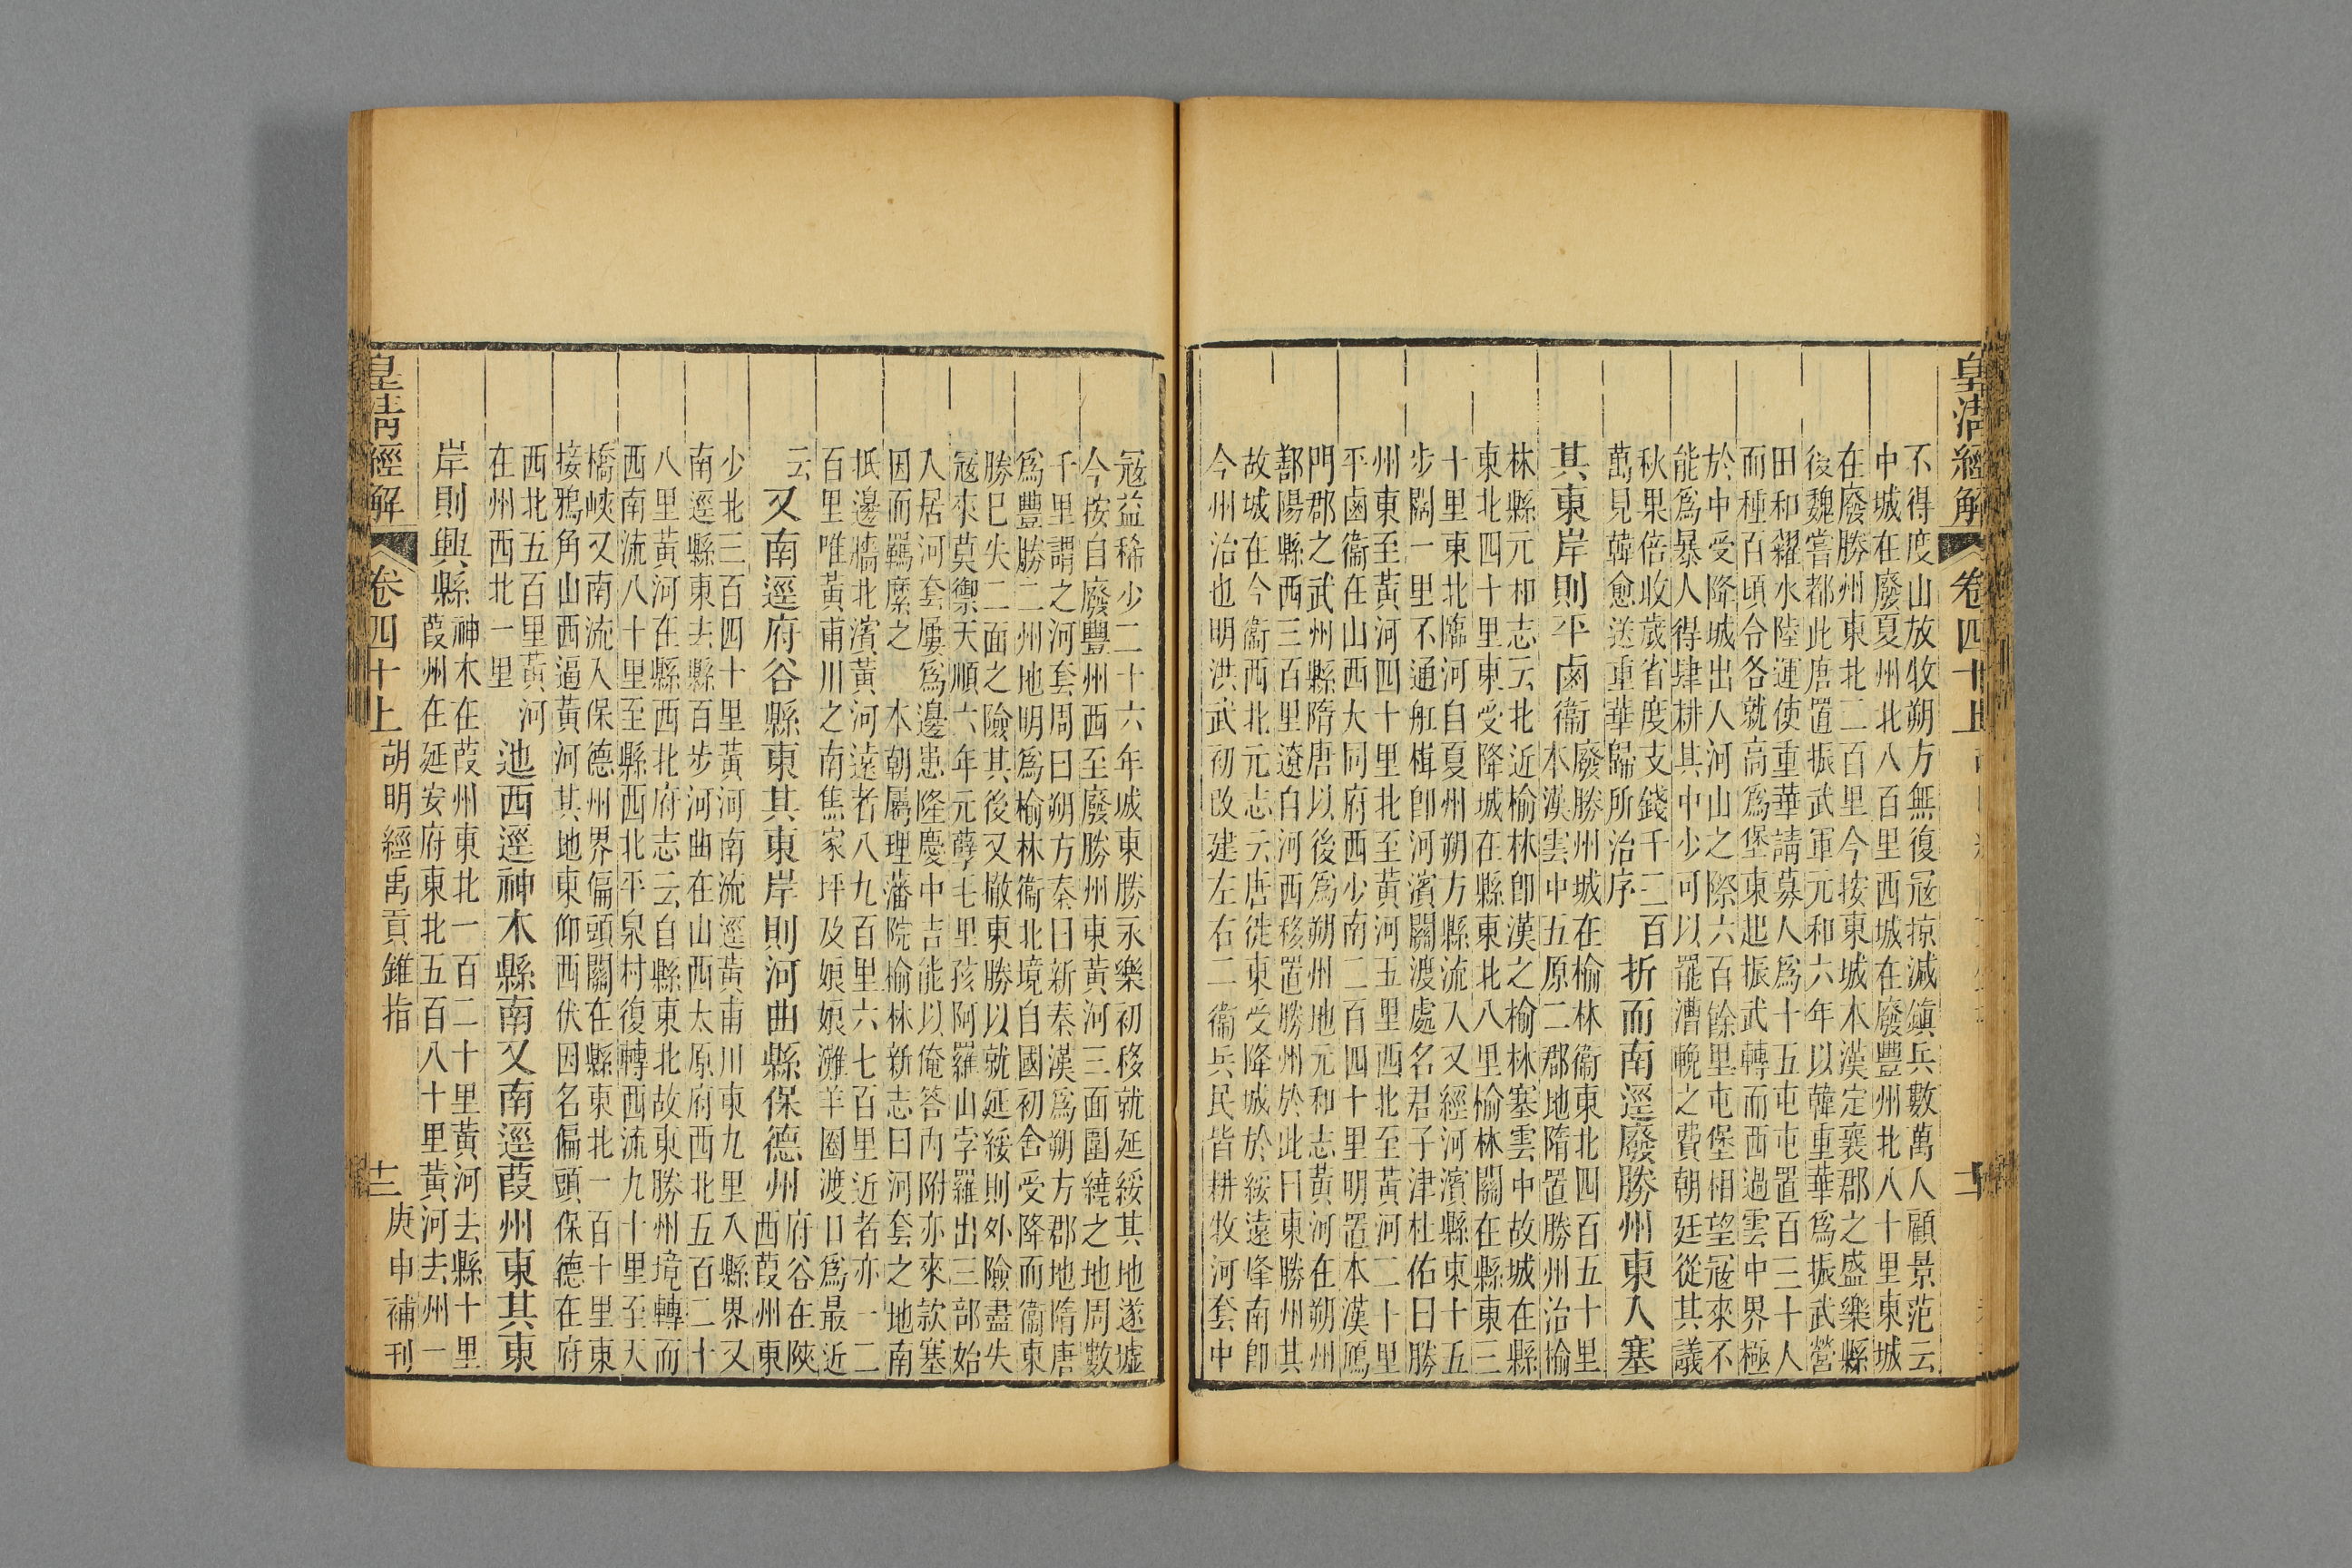 皇清經解
卷四十上
不得度山放牧朔方無復寇掠減鎮兵數萬人顧景范云
中城在廢夏州北八百里西城在廢豐州北八十里東城
在廢勝州東北二百里今按東城本漢定襄郡之盛樂縣
後魏嘗都此唐置振武軍元和六年以韓重華爲振武營
田和糴水陸運使重華請募人爲十五屯屯置百三十人
而種百頃令各就高爲堡東起振武轉而西過雲中界極
於中受降城出入河山之際六百餘里屯堡相望寇來不
能爲暴人得肆耕其中少可以罷漕輓之費朝廷從其議
秋果倍收歲省度支錢千二百
萬見韓愈送重華歸所治序
折而南逕廢勝州東入塞
其東岸則平鹵衞
廢勝州城在榆林衞東北四百五十里
本漢雲中五原二郡地隋置勝州治榆
林縣元和志云北近榆林卽漢之榆林塞雲中故城在縣
東北四十里東受降城在縣東北八里榆林關在縣東三
十里東北臨河自夏州朔方縣流入又經河濱縣東十五
步闊一里不通舡楫卽河濱關渡處名君子津杜佑曰勝
州東至黃河四十里北至黃河五里西北至黃河二十里
平鹵衞在山西大同府西少南二百四十里明置本漢鴈
門郡之武州縣隋唐以後爲朔州地元和志黃河在朔州
鄯陽縣西三百里遼自河西移置勝州於此曰東勝州其
故城在今衞西北元志云唐徙東受降城於綏遠烽南卽
今州治也明洪武初改建左右二衞兵民皆耕牧河套中
寇益稀少二十六年城東勝永樂初移就延綏其地遂墟
今按自廢豐州西至廢勝州東黃河三面圍繞之地周數
千里謂之河套周曰朔方秦曰新秦漢爲朔方郡地隋唐
爲豐勝二州地明爲榆林衞北境自國初舍受降而衞東
勝已失二面之險其後又撤東勝以就延綏則外險盡失
寇來莫禦天順六年元孽毛里孩阿羅山孛羅出三部始
入居河套屢爲邊患隆慶中吉能以俺答內附亦來款塞
因而羈縻之 本朝屬理藩院榆林新志曰河套之地南
抵邊牆北濱黃河遠者八九百里六七百里近者亦一二
百里唯黃甫川之南焦家坪及娘娘灘羊圈渡口爲最近
云又南逕府谷縣東其東岸則河曲縣保德州
府谷在陝
西葭州東
少北三百四十里黃河南流逕黃甫川東九里入縣界又
南逕縣東去縣百步河曲在山西太原府西北五百二十
八里黃河在縣西北府志云自縣東北故東勝州境轉而
西南流八十里至縣西北平泉村復轉西流九十里至天
橋峽又南流入保德州界偏頭關在縣東北一百十里東
接鴉角山西逼黃河其地東仰西伏因名偏頭保德在府
西北五百里黃河
在州西北一里
迆西逕神木縣南又南逕葭州東其東
岸則興縣
神木在葭州東北一百二十里黃河去縣十里
葭州在延安府東北五百八十里黃河去州一
皇淸經解
卷四十上
胡明經禹貢錐指
十二
庚申補刊